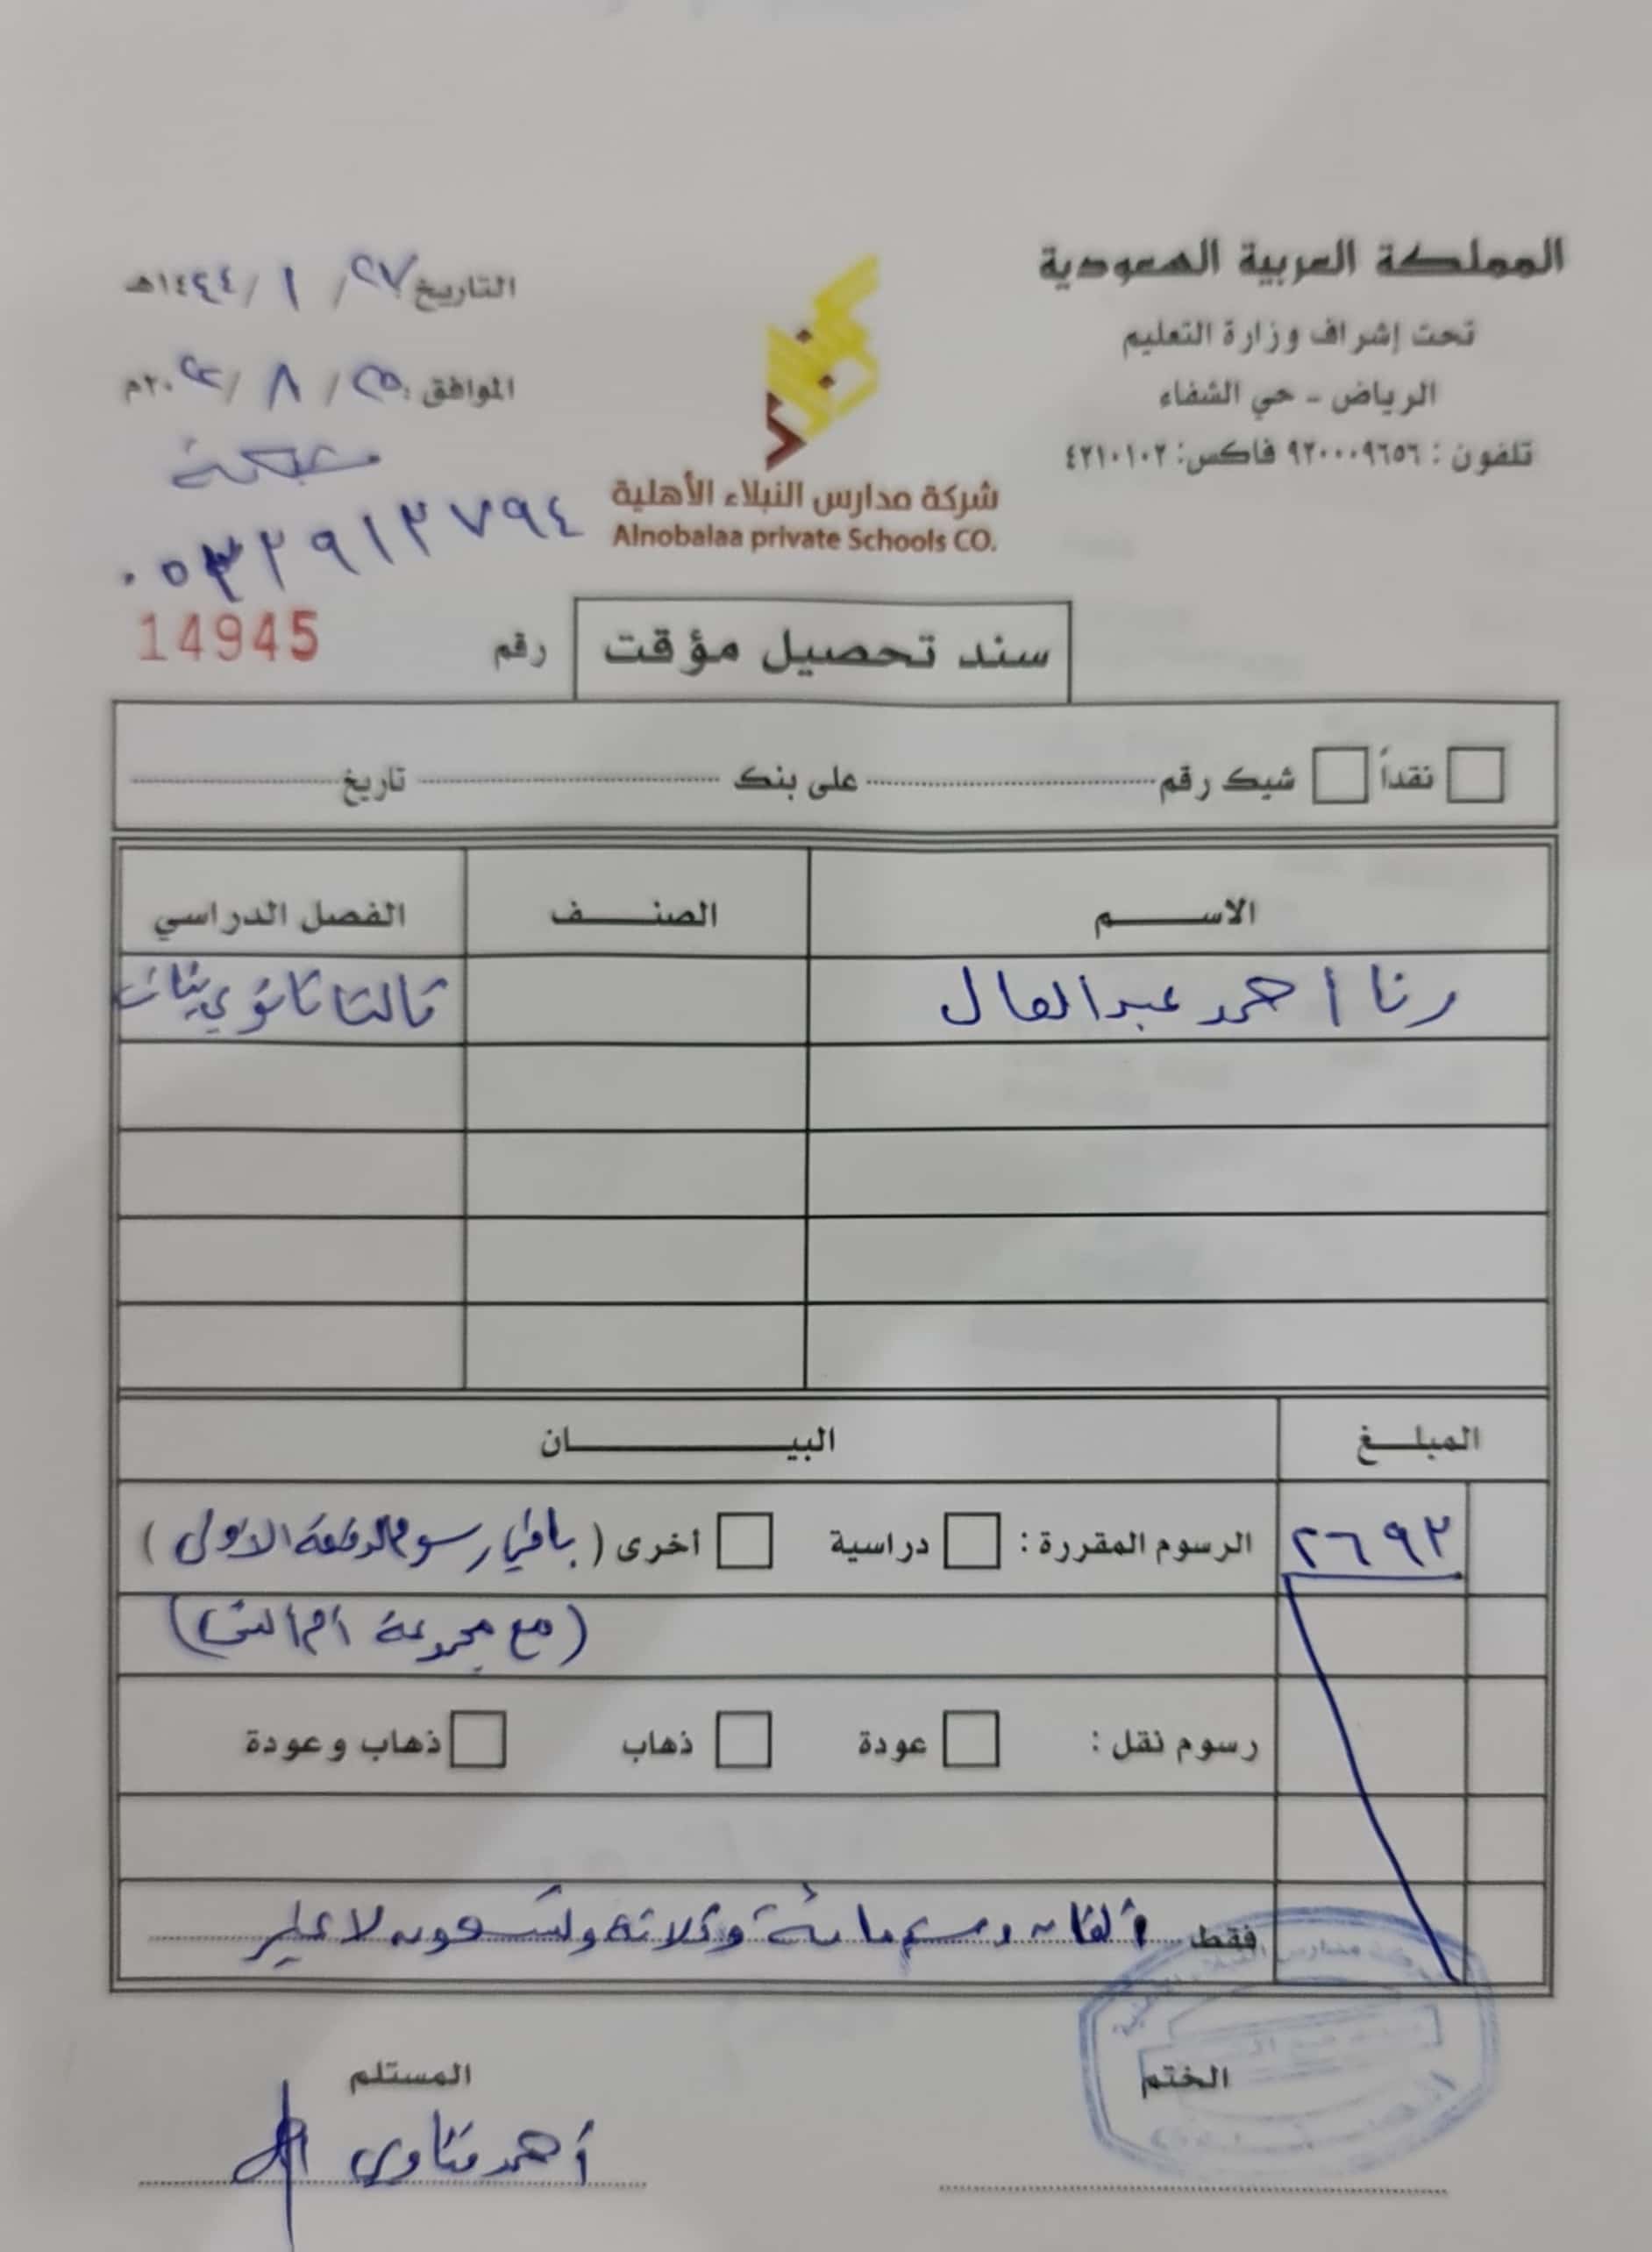 المملكة العربية السعودية
تحت إشراف وزارة التعليم
الرياض - حي الشفاء
تلفون : ٩٢٠٠٠٩٦٥٦ فاكس: ٤٢١٠١٠٢
شركة مدارس النبلاء الأهلية
Alnobalaa private Schools CO.
التاريخ ٢٧/ ١ /١٤٤٤هـ
الموافق ٢٥/ ٨ /٢٠٢٢م
٠٥٣٢٩١٢٧٩٤
سند تحصيل مؤقت
رقم 14945
نقداً شيك رقم على بنك تاريخ
الاسم الصنف الفصل الدراسي
رنا أحمد عبدالعال ثالثا ثانوي بنات
المبلغ البيان
٢٦٩٣ الرسوم المقررة : دراسية أخرى ( باقي رسوم الدفعة الأولى )
(مع مجموعة
رسوم نقل : عودة ذهاب ذهاب وعودة
فقط ألفان وستمائة وثلاثة وتسعون لا غير
الختم
المستلم
أحمد